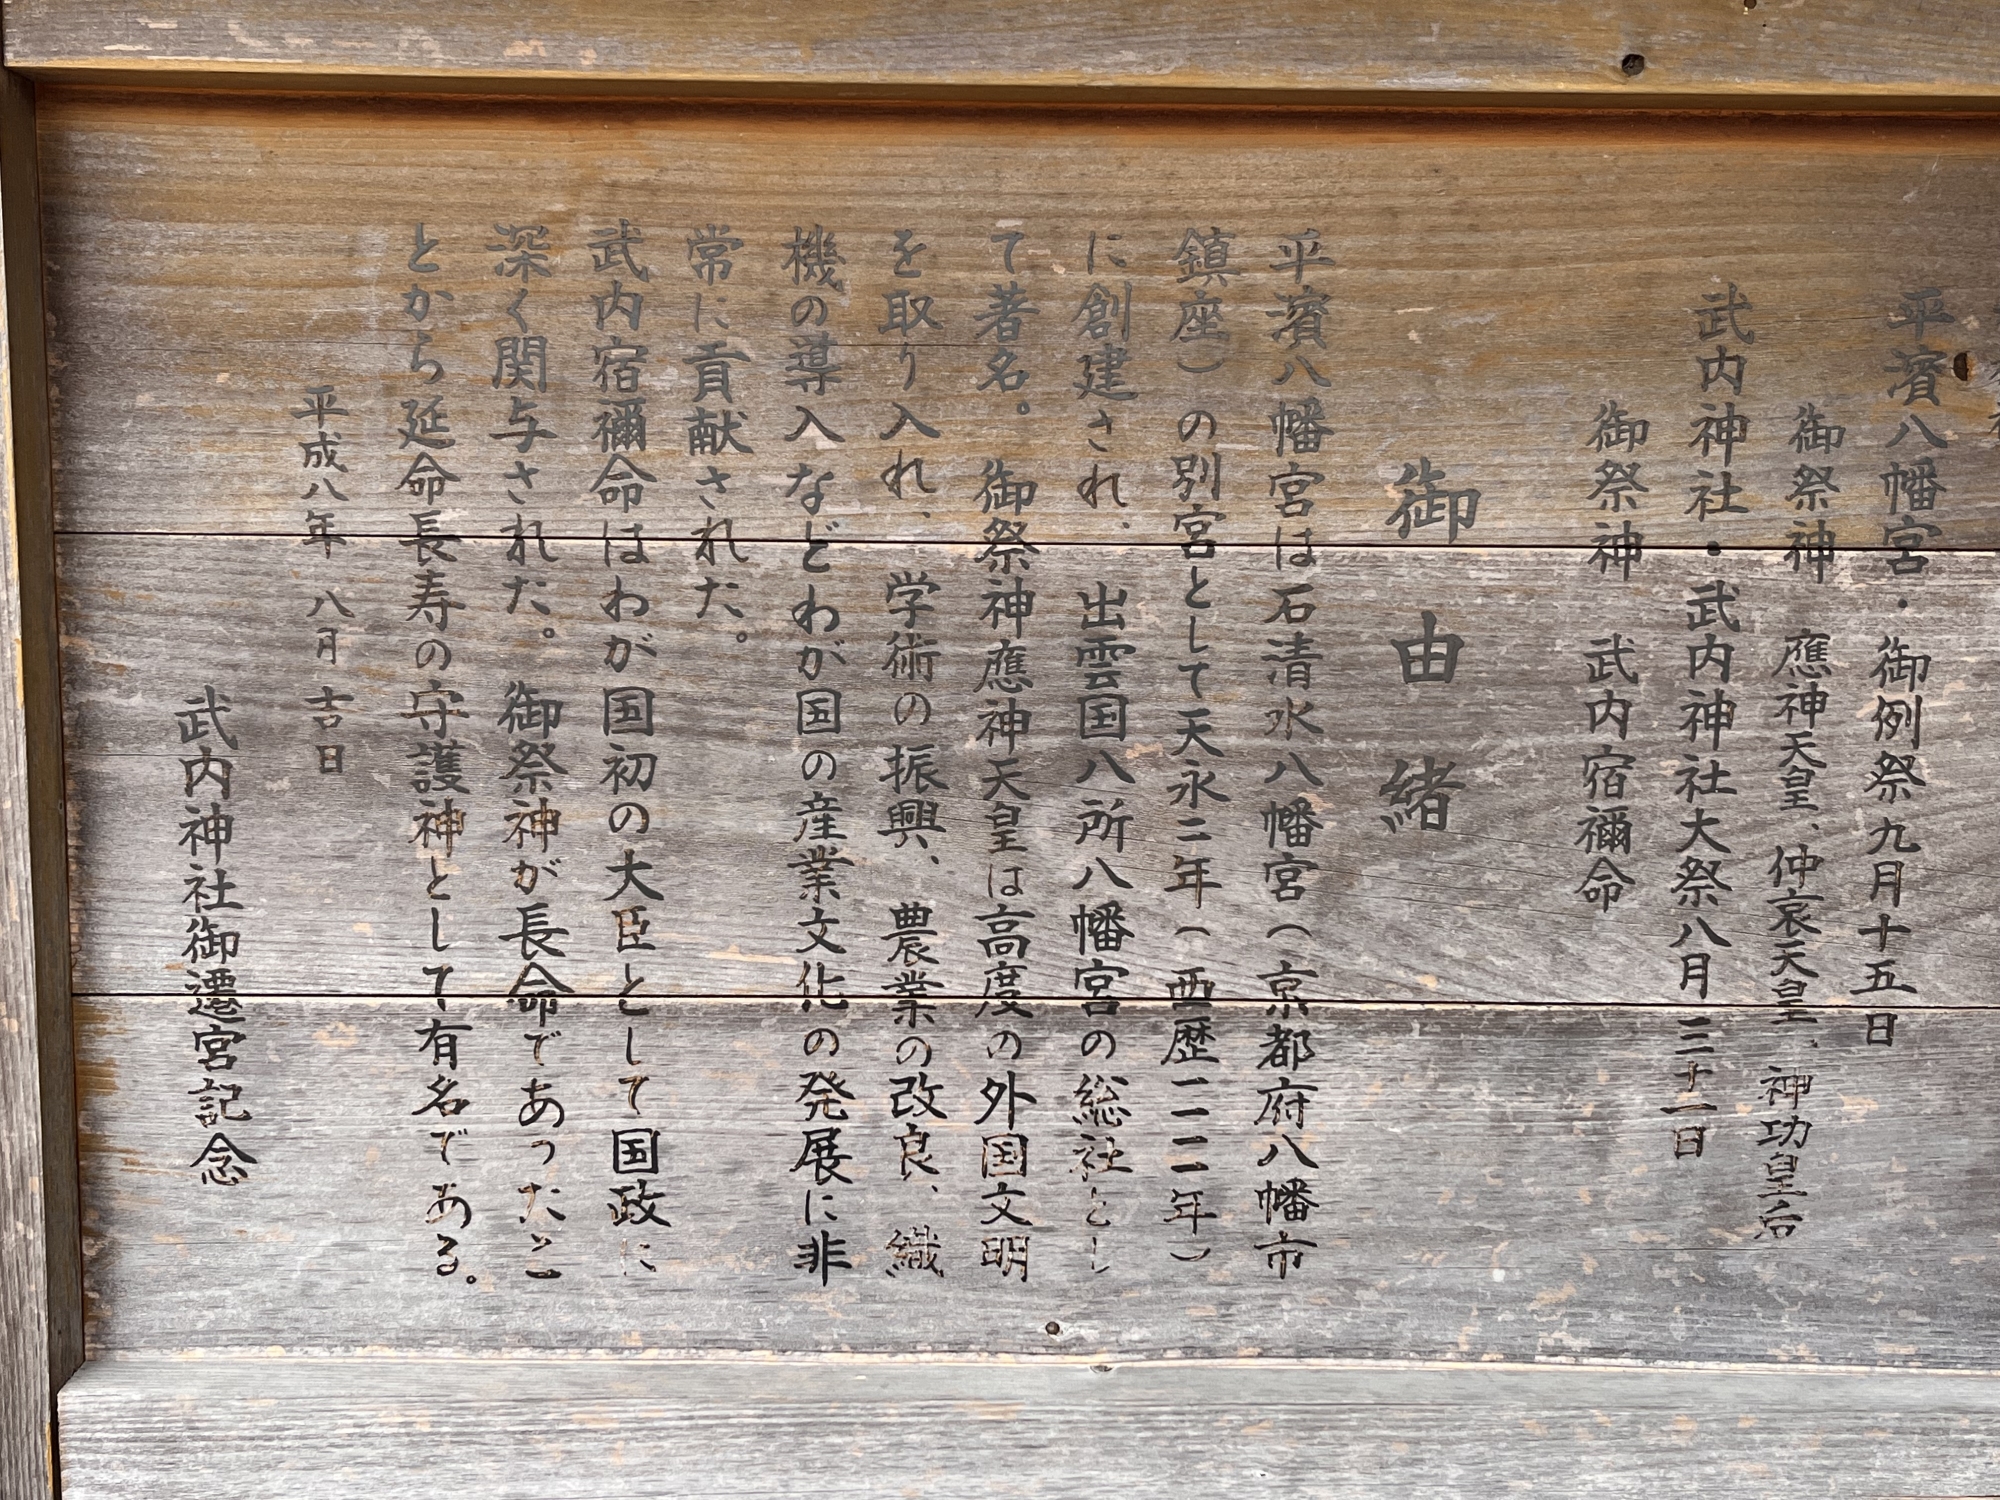 平濱八幡宮・御例祭九月十五日
御祭神 應神天皇、仲哀天皇、神功皇后
武内神社・武内神社大祭八月三十一日
御祭神 武内宿禰命
御由緒
平濱八幡宮は石清水八幡宮(京都府八幡市
鎮座)の別宮として天永二年(西歴一一一一年)
に創建され、出雲国八所八幡宮の総社とし
て著名。御祭神應神天皇は高度の外国文明
を取り入れ、学術の振興、農業の改良、織
機の導入などわが国の産業文化の発展に非
常に貢献された。
武内宿禰命はわが国初の大臣として国政に
深く関与された。御祭神が長命であったこ
とから延命長寿の守護神として有名である。
平成八年 八月 吉日
武内神社御遷宮記念